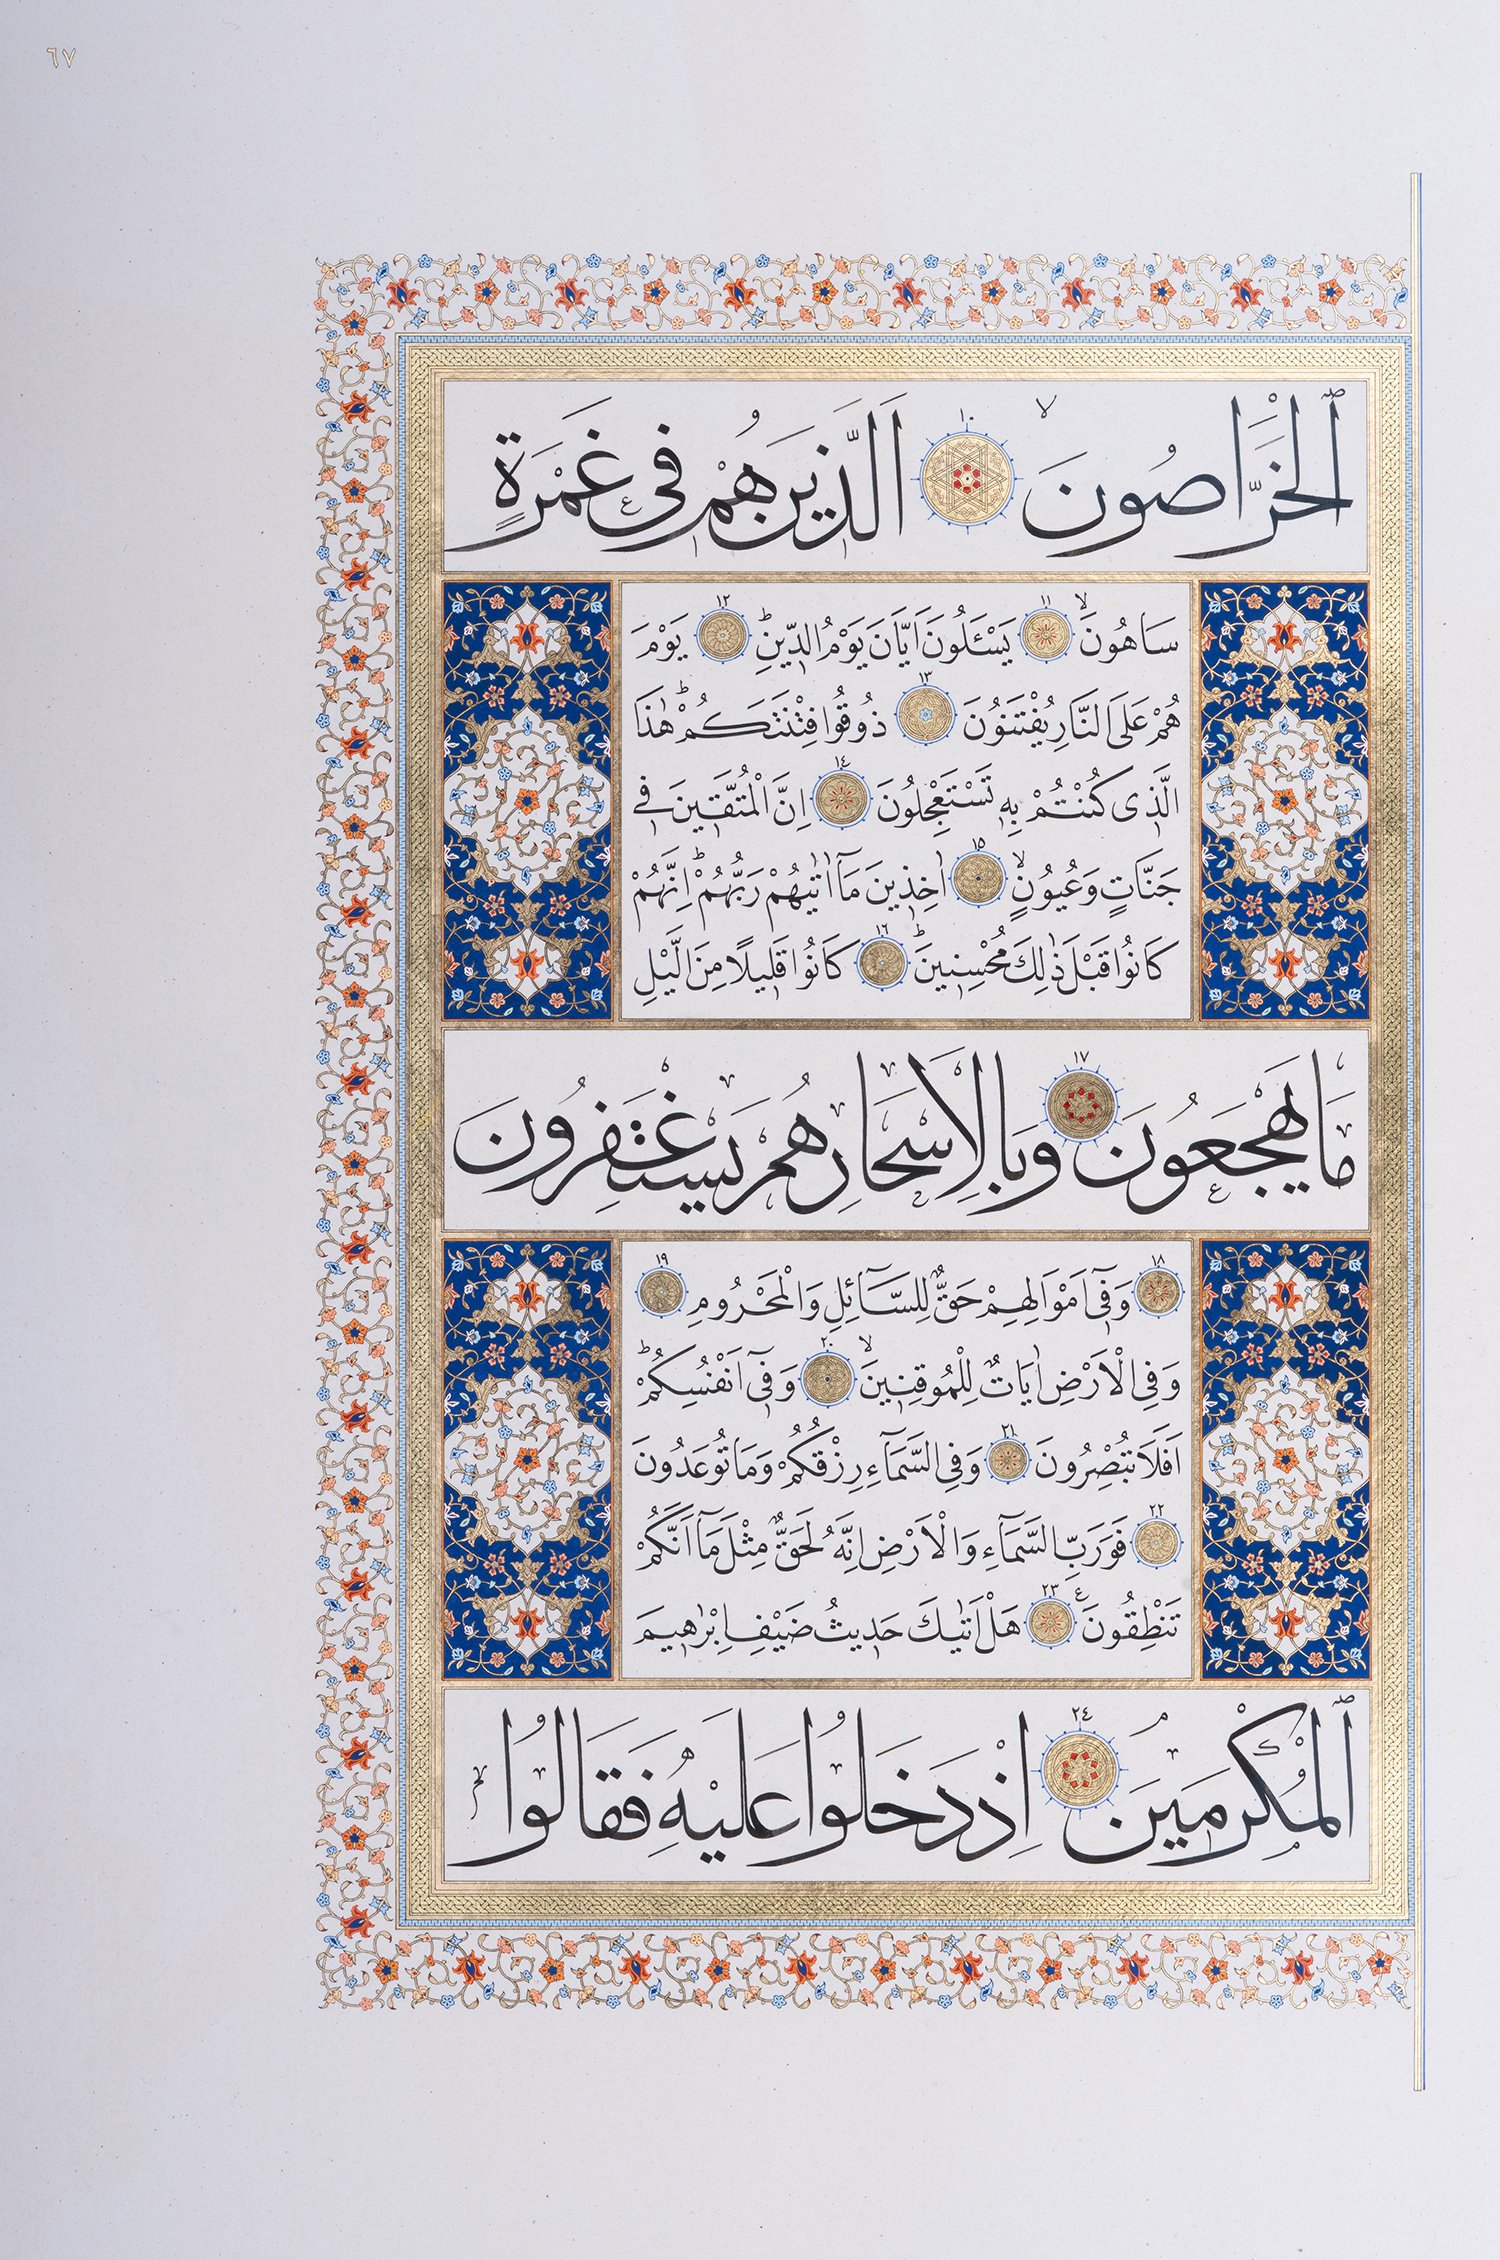 ٦٧
ٱلْخَرَّاصُونَۙ ١٠ اَلَّذ۪ينَ هُمْ ف۪ي غَمْرَةٍ
سَاهُونَۙ ١١ يَسْـَٔلُونَ اَيَّانَ يَوْمُ الدّ۪ينِۜ ١٢ يَوْمَ
هُمْ عَلَى النَّارِ يُفْتَنُونَ ١٣ ذُوقُوا فِتْنَتَكُمْۜ هٰذَا
الَّذ۪ي كُنْتُمْ بِه۪ تَسْتَعْجِلُونَ ١٤ اِنَّ الْمُتَّق۪ينَ ف۪ي
جَنَّاتٍ وَعُيُونٍۙ ١٥ اٰخِذ۪ينَ مَٓا اٰتٰيهُمْ رَبُّهُمْۜ اِنَّهُمْ
كَانُوا قَبْلَ ذٰلِكَ مُحْسِن۪ينَۜ ١٦ كَانُوا قَل۪يلًا مِنَ الَّيْلِ
مَا يَهْجَعُونَ ١٧ وَبِالْاَسْحَارِ هُمْ يَسْتَغْفِرُونَ
١٨ وَف۪ٓي اَمْوَالِهِمْ حَقٌّ لِلسَّٓائِلِ وَالْمَحْرُومِ ١٩
وَفِي الْاَرْضِ اٰيَاتٌ لِلْمُوقِن۪ينَۙ ٢٠ وَف۪ٓي اَنْفُسِكُمْۜ
اَفَلَا تُبْصِرُونَ ٢١ وَفِي السَّمَٓاءِ رِزْقُكُمْ وَمَا تُوعَدُونَ
٢٢ فَوَرَبِّ السَّمَٓاءِ وَالْاَرْضِ اِنَّهُ لَحَقٌّ مِثْلَ مَٓا اَنَّكُمْ
تَنْطِقُونَ ع ٢٣ هَلْ اَتٰيكَ حَد۪يثُ ضَيْفِ اِبْرٰه۪يمَ
ٱلْمُكْرَم۪ينَۢ ٢٤ اِذْ دَخَلُوا عَلَيْهِ فَقَالُوا